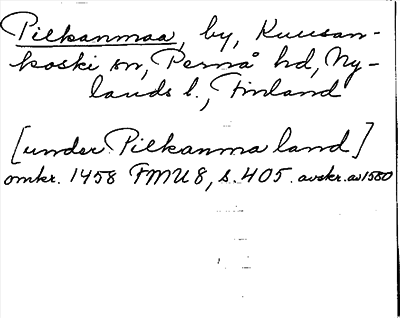 Pilkanmaa, by, Kuusan-
koski sn, Pernå hd, Ny-
lands l., Finland
[under Pilkanma land]
omkr. 1458 FMU 8, s. 405. avskr. av 1580